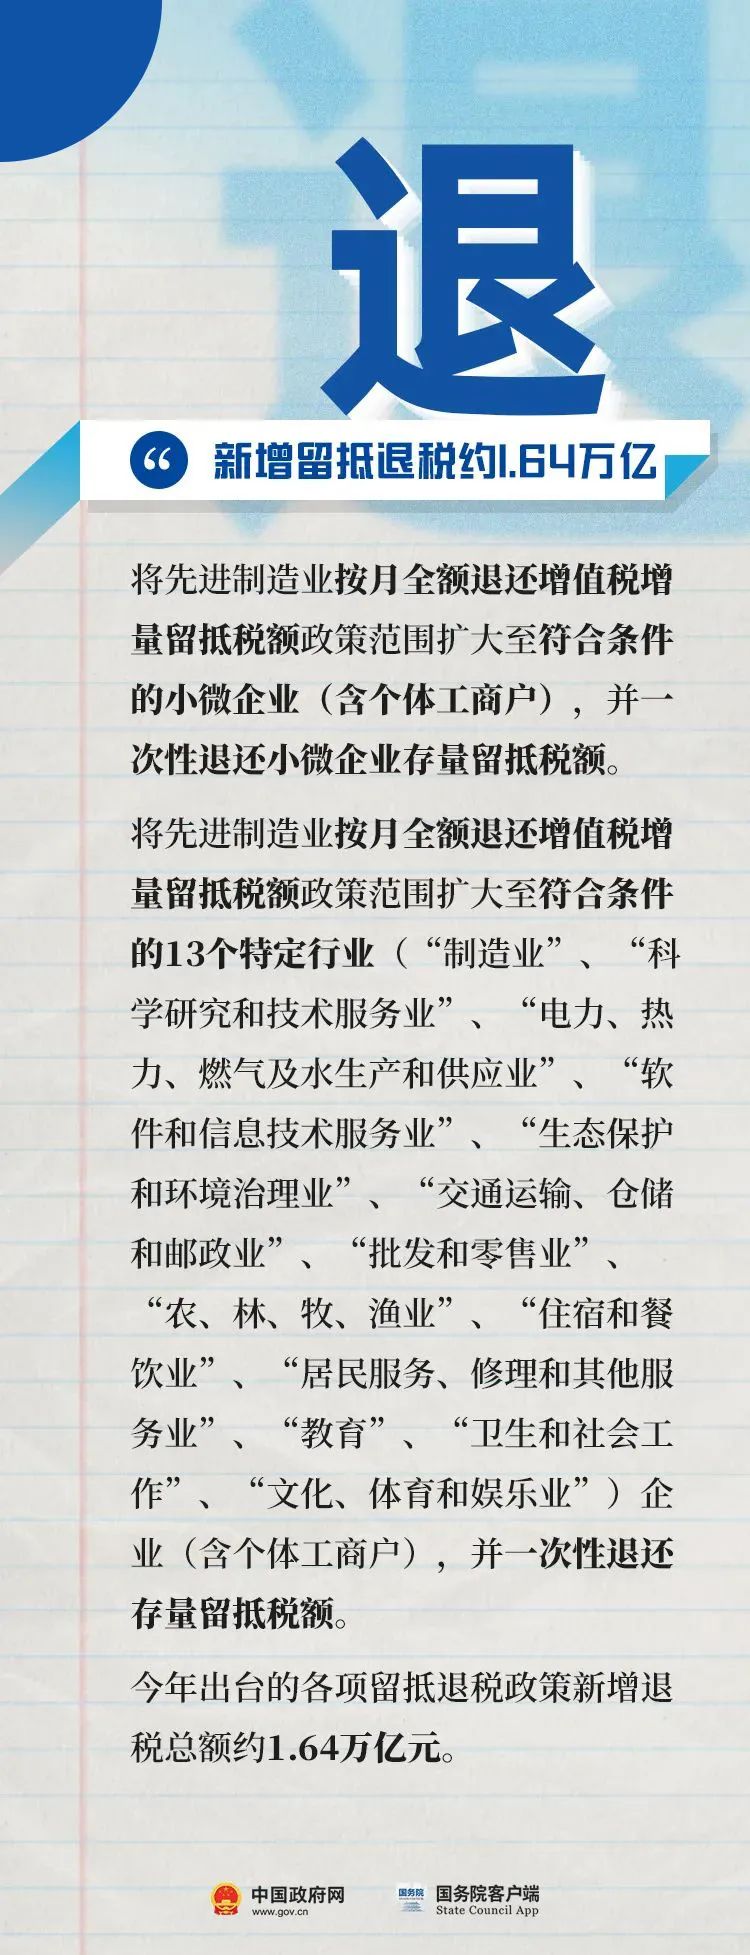 退
“ 新增留抵退税约1.64万亿
将先进制造业按月全额退还增值税增
量留抵税额政策范围扩大至符合条件
的小微企业（含个体工商户），并一
次性退还小微企业存量留抵税额。
将先进制造业按月全额退还增值税增
量留抵税额政策范围扩大至符合条件
的13个特定行业（“制造业”、“科
学研究和技术服务业”、“电力、热
力、燃气及水生产和供应业”、“软
件和信息技术服务业”、“生态保护
和环境治理业”、“交通运输、仓储
和邮政业”、“批发和零售业”、
“农、林、牧、渔业”、“住宿和餐
饮业”、“居民服务、修理和其他服
务业”、“教育”、“卫生和社会工
作”、“文化、体育和娱乐业”）企
业（含个体工商户），并一次性退还
存量留抵税额。
今年出台的各项留抵退税政策新增退
税总额约1.64万亿元。
中国政府网
www.gov.cn
国务院
国务院客户端
State Council App